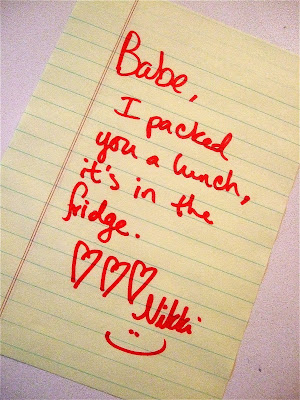 Babe,
I packed
you a lunch,
it's in the
fridge.
♡♡♡
Nikki